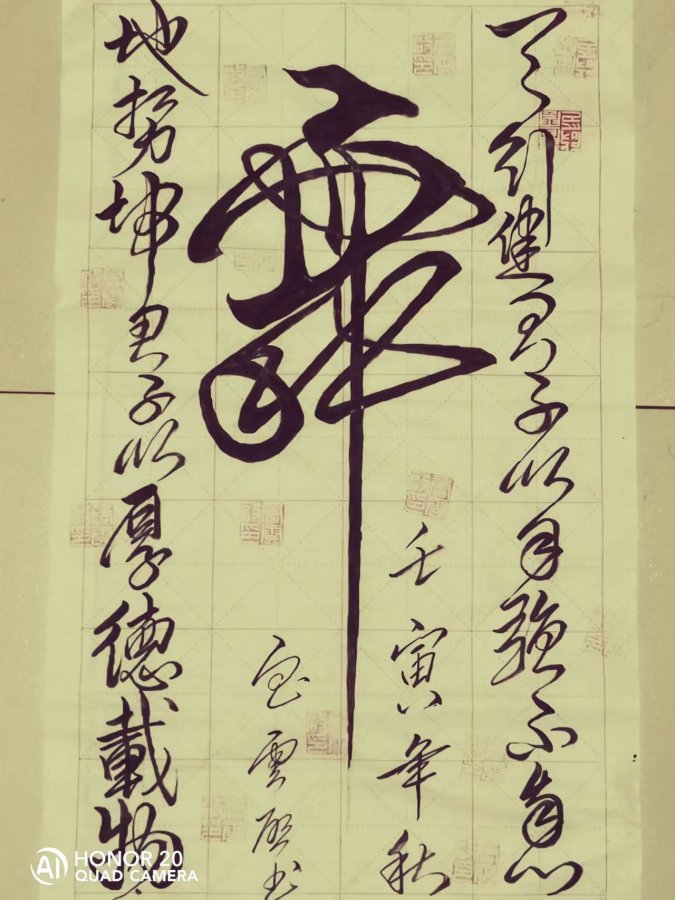 天行健君子以自强不息
虎
壬寅年秋
雲
书
地势坤君子以厚德載物
HONOR 20
AI QUAD CAMERA